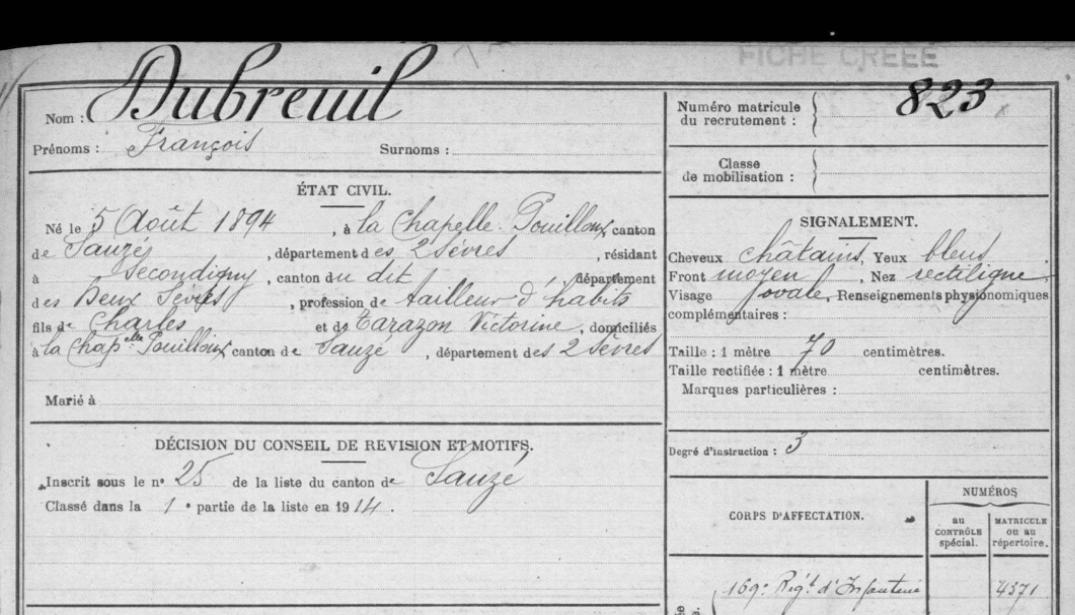 FICHE CRÉÉE
Nom : Dubreuil
Prénoms : François Surnoms :
Numéro matricule du recrutement : 823
Classe de mobilisation :
ÉTAT CIVIL.
Né le 5 Août 1894, à la Chapelle Pouilloux canton
de Sauzé, département des 2 Sèvres, résidant
à Secondigny, canton du dit département
des Deux Sèvres, profession de tailleur d'habits
fils de Charles et de Tarazon Victorine, domiciliés
à la Chap^elle Pouilloux canton de Sauzé, département des 2 Sèvres
Marié à
SIGNALEMENT.
Cheveux châtains, Yeux bleus
Front moyen, Nez rectiligne
Visage ovale, Renseignements physionomiques
complémentaires :
Taille : 1 mètre 70 centimètres.
Taille rectifiée : 1 mètre centimètres.
Marques particulières :
Degré d'instruction : 3
DÉCISION DU CONSEIL DE REVISION ET MOTIFS.
Inscrit sous le n° 25 de la liste du canton de Sauzé
Classé dans la 1e partie de la liste en 1914.
CORPS D'AFFECTATION.
NUMÉROS
au CONTRÔLE spécial.
MATRICULE ou au répertoire.
169e Rég^t d'Infanterie 4371